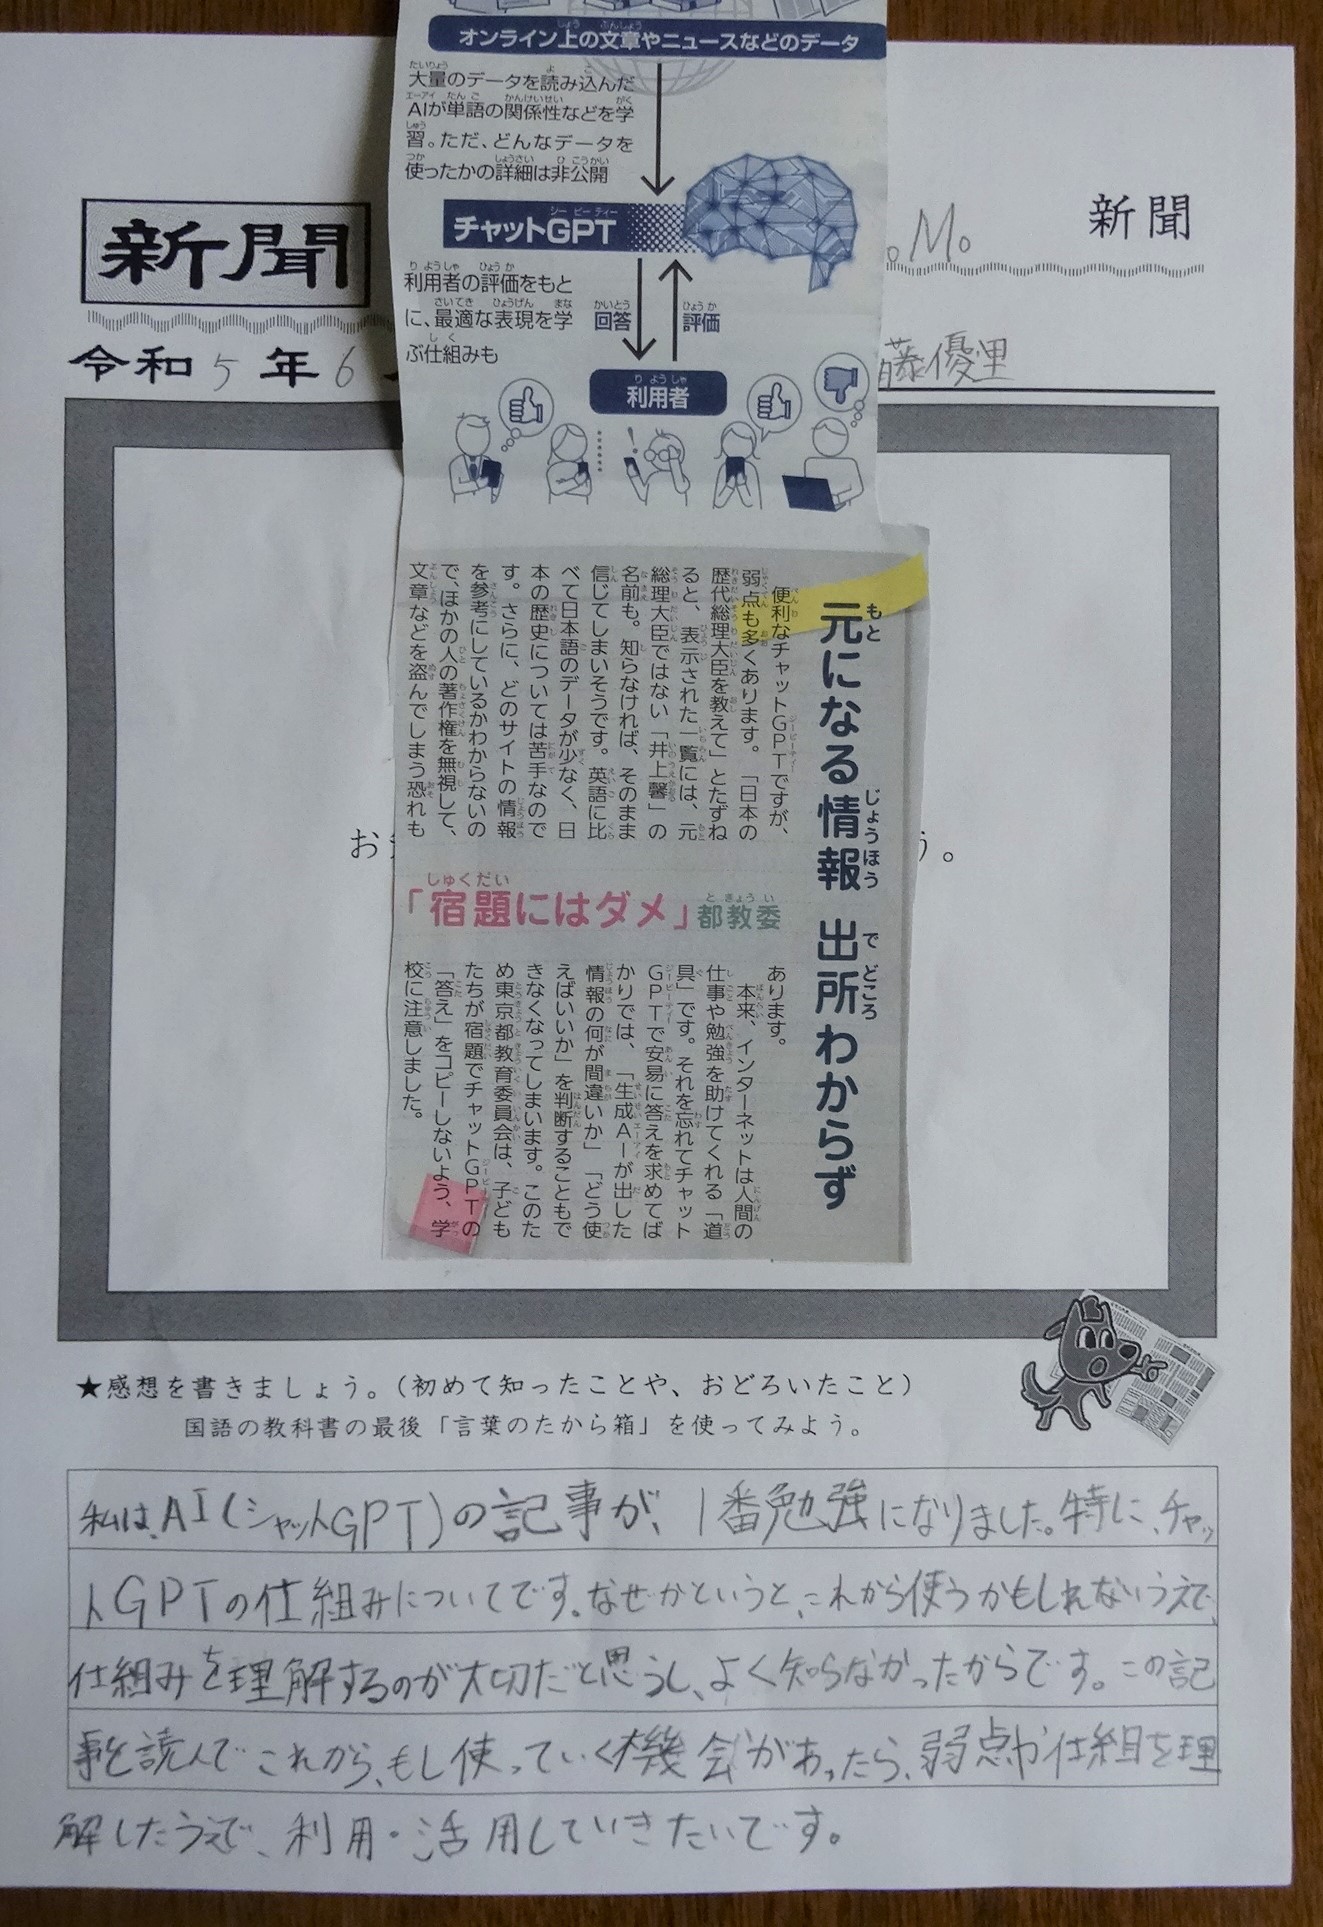 オンライン上の文章やニュースなどのデータ
大量のデータを読み込んだ
AIが単語の関係性などを学
習。ただ、どんなデータを
使ったかの詳細は非公開
チャットGPT
利用者の評価をもと
に、最適な表現を学
ぶ仕組みも
回答
評価
利用者
新聞
。M。
新聞
令和5年6
藤優里
元になる情報 出所わからず
便利なチャットGPTですが、
弱点も多くあります。「日本の
歴代総理大臣を教えて」とたずね
ると、表示された一覧には、元
総理大臣ではない「井上馨」の
名前も。知らなければ、そのまま
信じてしまいそうです。英語に比
べて日本語のデータが少なく、日
本の歴史については苦手なので
す。さらに、どのサイトの情報
を参考にしているかわからないの
で、ほかの人の著作権を無視して、
文章などを盗んでしまう恐れも
お
う。
「宿題にはダメ」都教委
あります。
本来、インターネットは人間の
仕事や勉強を助けてくれる「道
具」です。それを忘れてチャット
GPTで安易に答えを求めてば
かりでは、「生成AIが出した
情報の何が間違いか」「どう使
えばいいか」を判断することもで
きなくなってしまいます。このた
め東京都教育委員会は、子ども
たちが宿題でチャットGPTの
「答え」をコピーしないよう、学
校に注意しました。
★感想を書きましょう。（初めて知ったことや、おどろいたこと）
国語の教科書の最後「言葉のたから箱」を使ってみよう。
私は、AI(シャットGPT)の記事が、1番勉強になりました。特に、チャッ
トGPTの仕組みについてです。なぜかというと、これから使うかもしれないうえで、
仕組みを理解するのが大切だと思うし、よく知らなかったからです。この記
事を読んでこれから、もし使っていく機会があったら、弱点や仕組を理
解したうえで、利用・活用していきたいです。